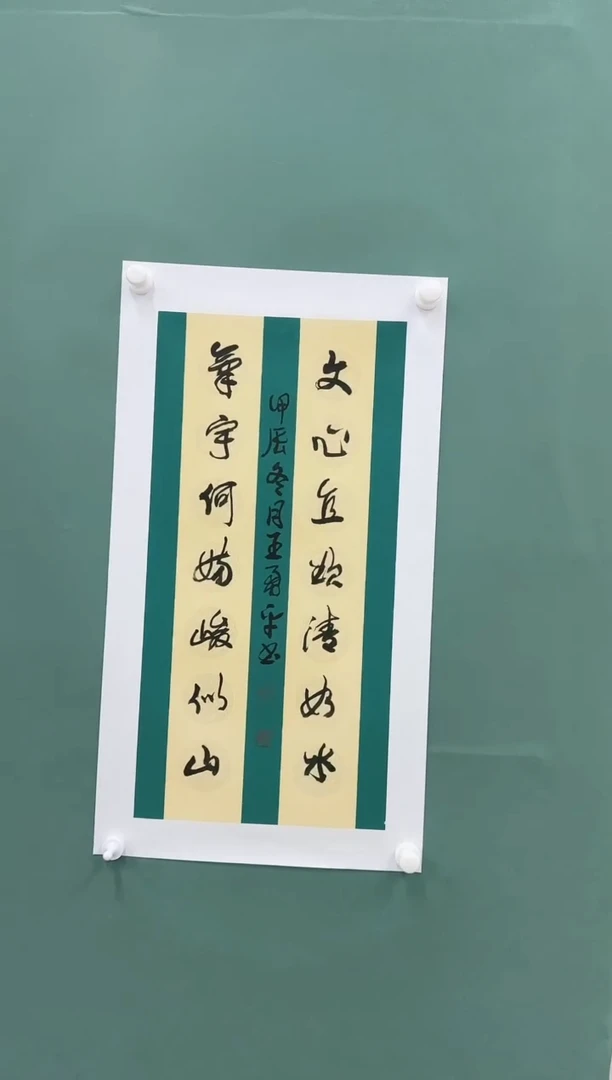 文心直欲清如水
氣宇何妨峻似山
甲辰冬月王勇平书